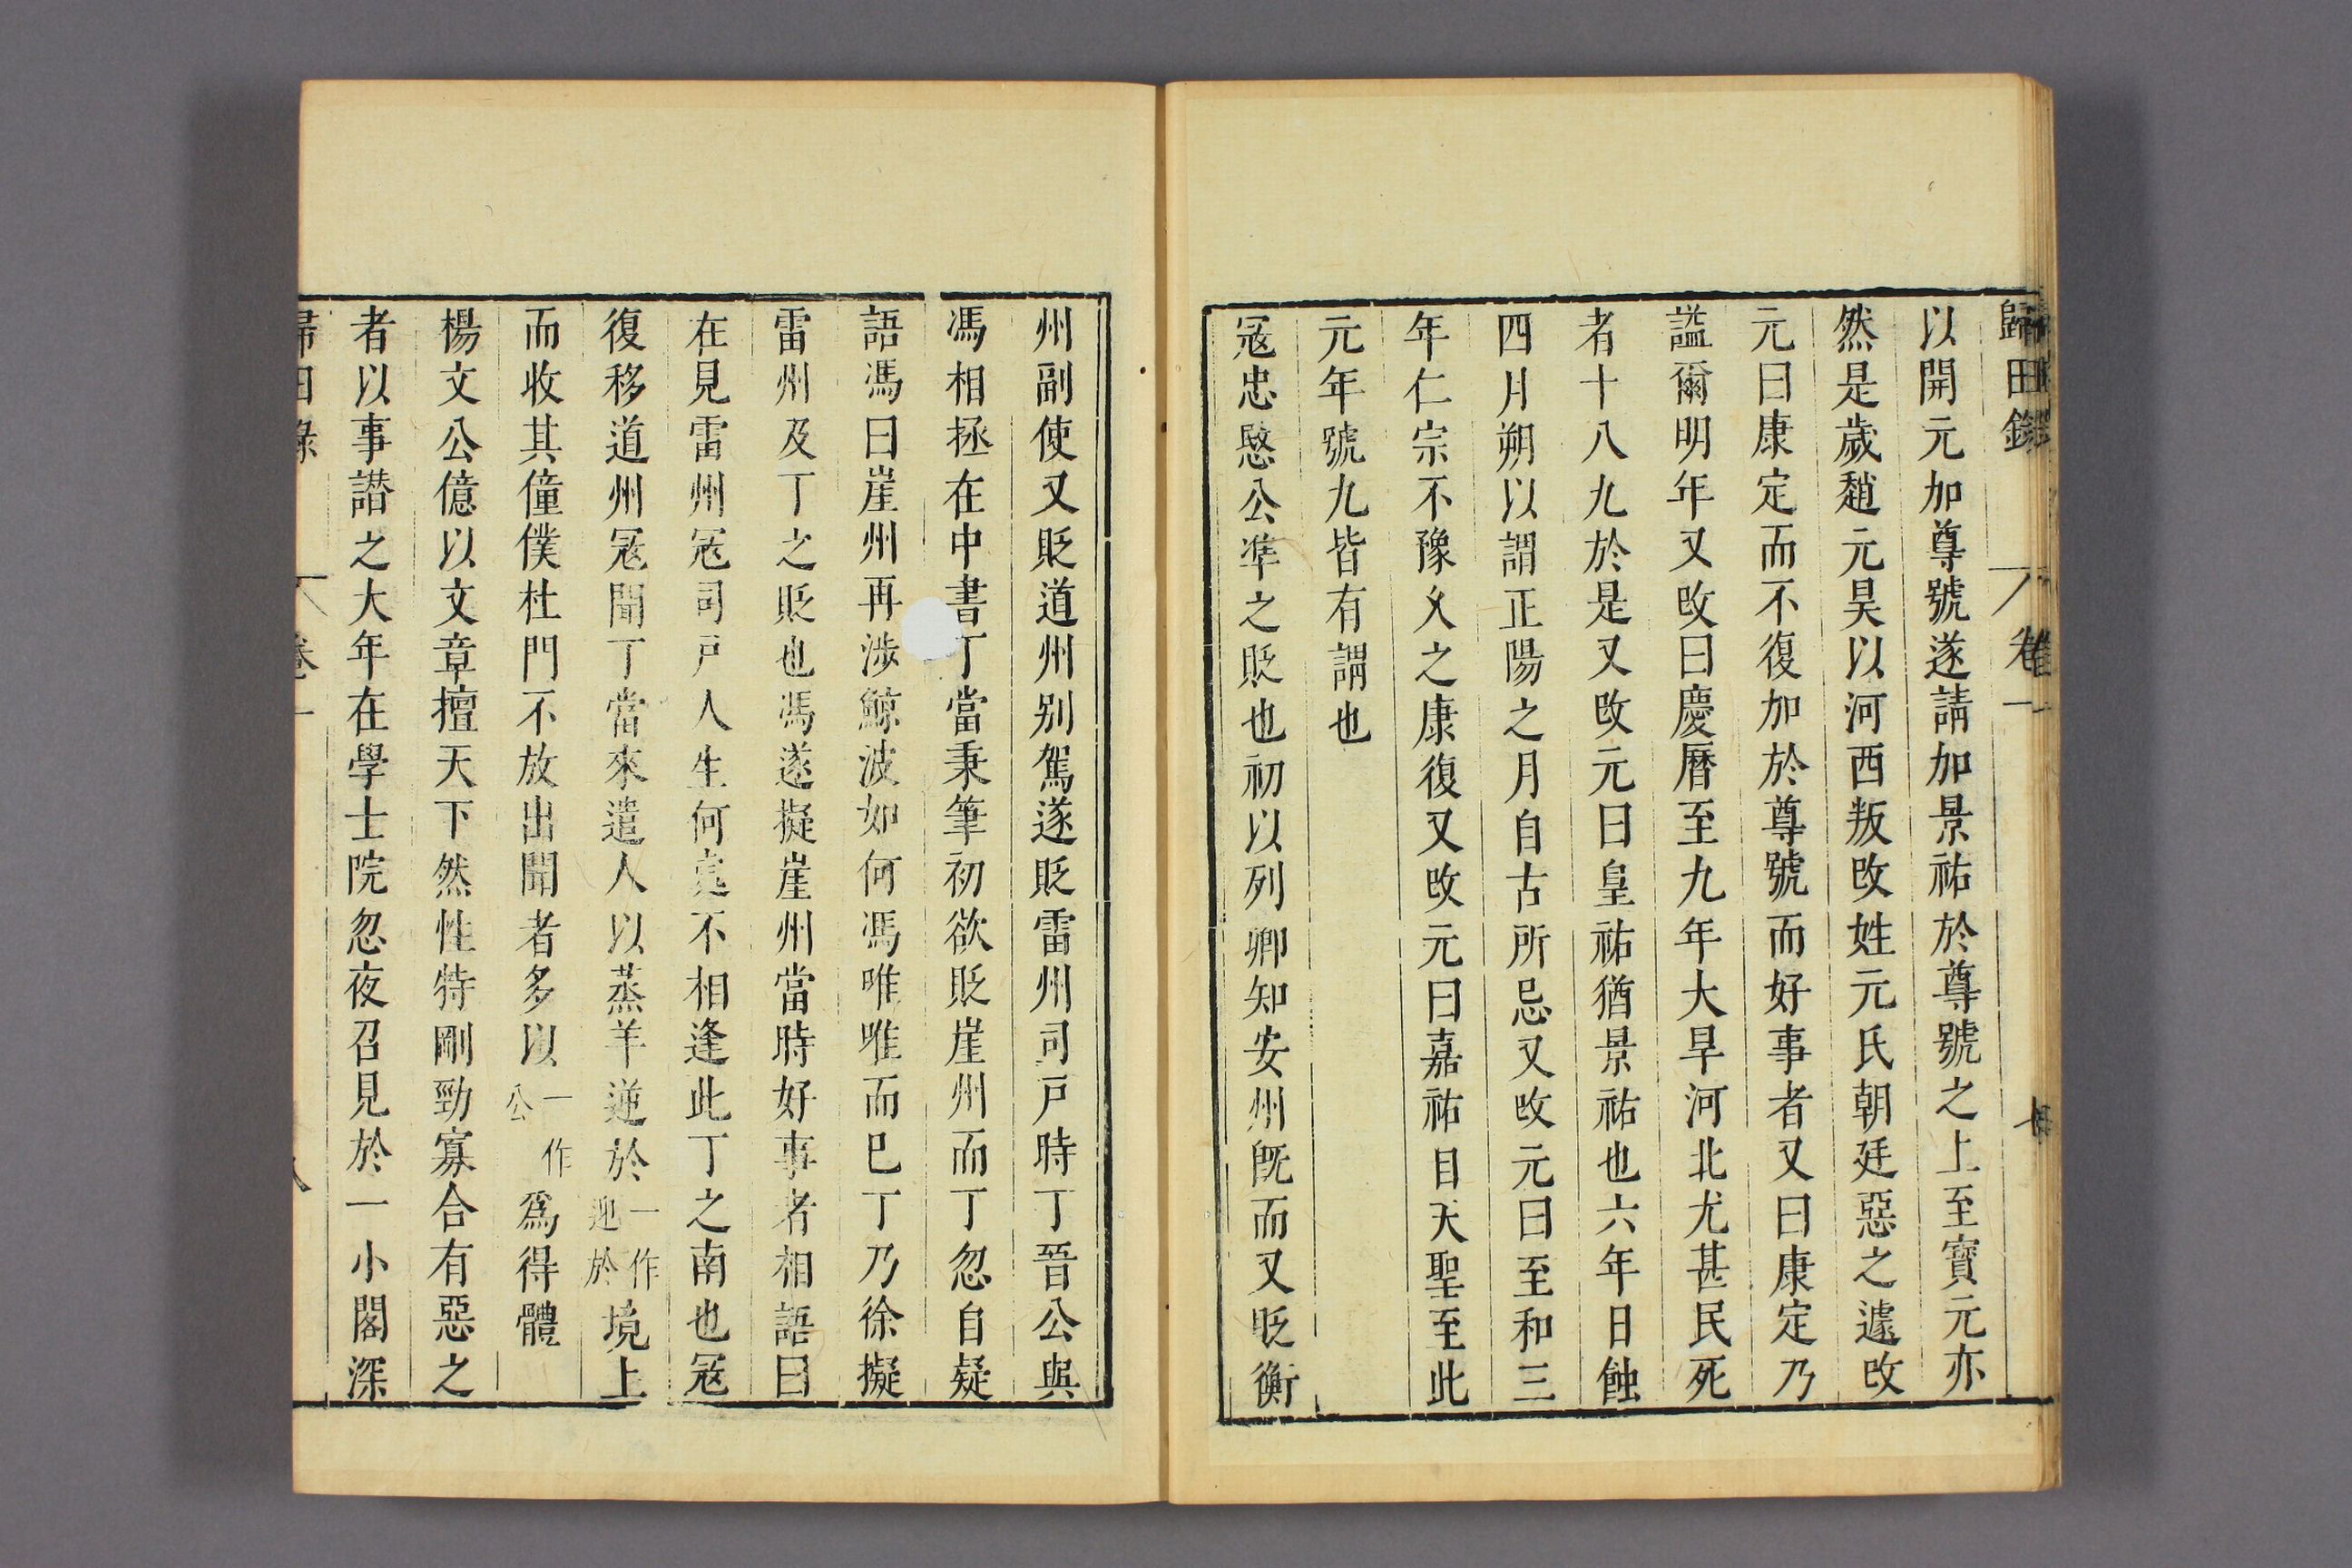 歸田錄 卷一 七
以開元加尊號遂請加景祐於尊號之上至寶元亦
然是歲趙元昊以河西叛改姓元氏朝廷惡之遽改
元曰康定而不復加於尊號而好事者又曰康定乃
謚爾明年又改曰慶曆至九年大旱河北尤甚民死
者十八九於是又改元曰皇祐猶景祐也六年日蝕
四月朔以謂正陽之月自古所忌又改元曰至和三
年仁宗不豫久之康復又改元曰嘉祐自天聖至此
元年號九皆有謂也
冦忠愍公凖之貶也初以列卿知安州旣而又貶衡
州副使又貶道州别駕遂貶雷州司戸時丁晉公與
馮相拯在中書丁當秉筆初欲貶崖州而丁忽自疑
語馮曰崖州再涉鯨波如何馮唯唯而已丁乃徐擬
雷州及丁之貶也馮遂擬崖州當時好事者相語曰
在見雷州冦司戸人生何處不相逢此丁之南也冦
復移道州冦聞丁當來遣人以蒸羊逆於一作迎於境上
而收其僮僕杜門不放出聞者多以一作公爲得體
楊文公億以文章擅天下然性特剛勁寡合有惡之
者以事譖之大年在學士院忽夜召見於一小閣深
歸田錄 卷一 八